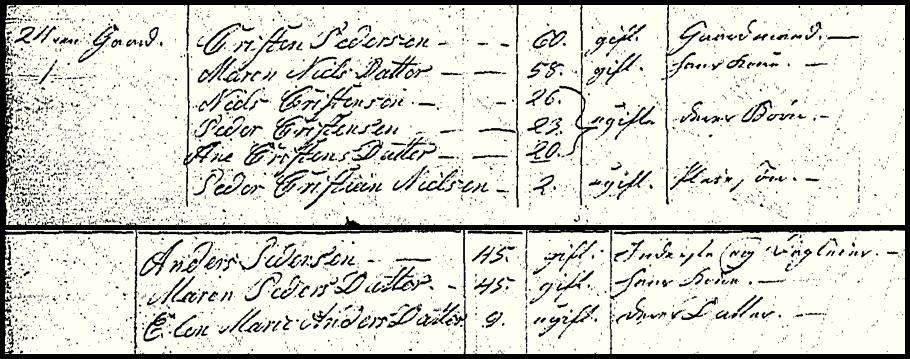 24 en Gaard. Cristen Pedersen - - - 60. gift. Gaardmand. -
1 Maren Niels Datter - - 58. gift. hans Kone. -
Niels Cristensen. - 26.
Peder Cristensen - - 23. ugift. deres Børn. -
Ane Cristens Datter - - 20.
Peder Cristian Nielsen - 2. ugift. Pleie søn. -
Anders Pedersen - - 45. gift. Inderste og Daglejer. -
Maren Peders Datter. - 45. gift. hans Kone. -
Elen Marie Anders Datter 9. ugift. deres Datter. -